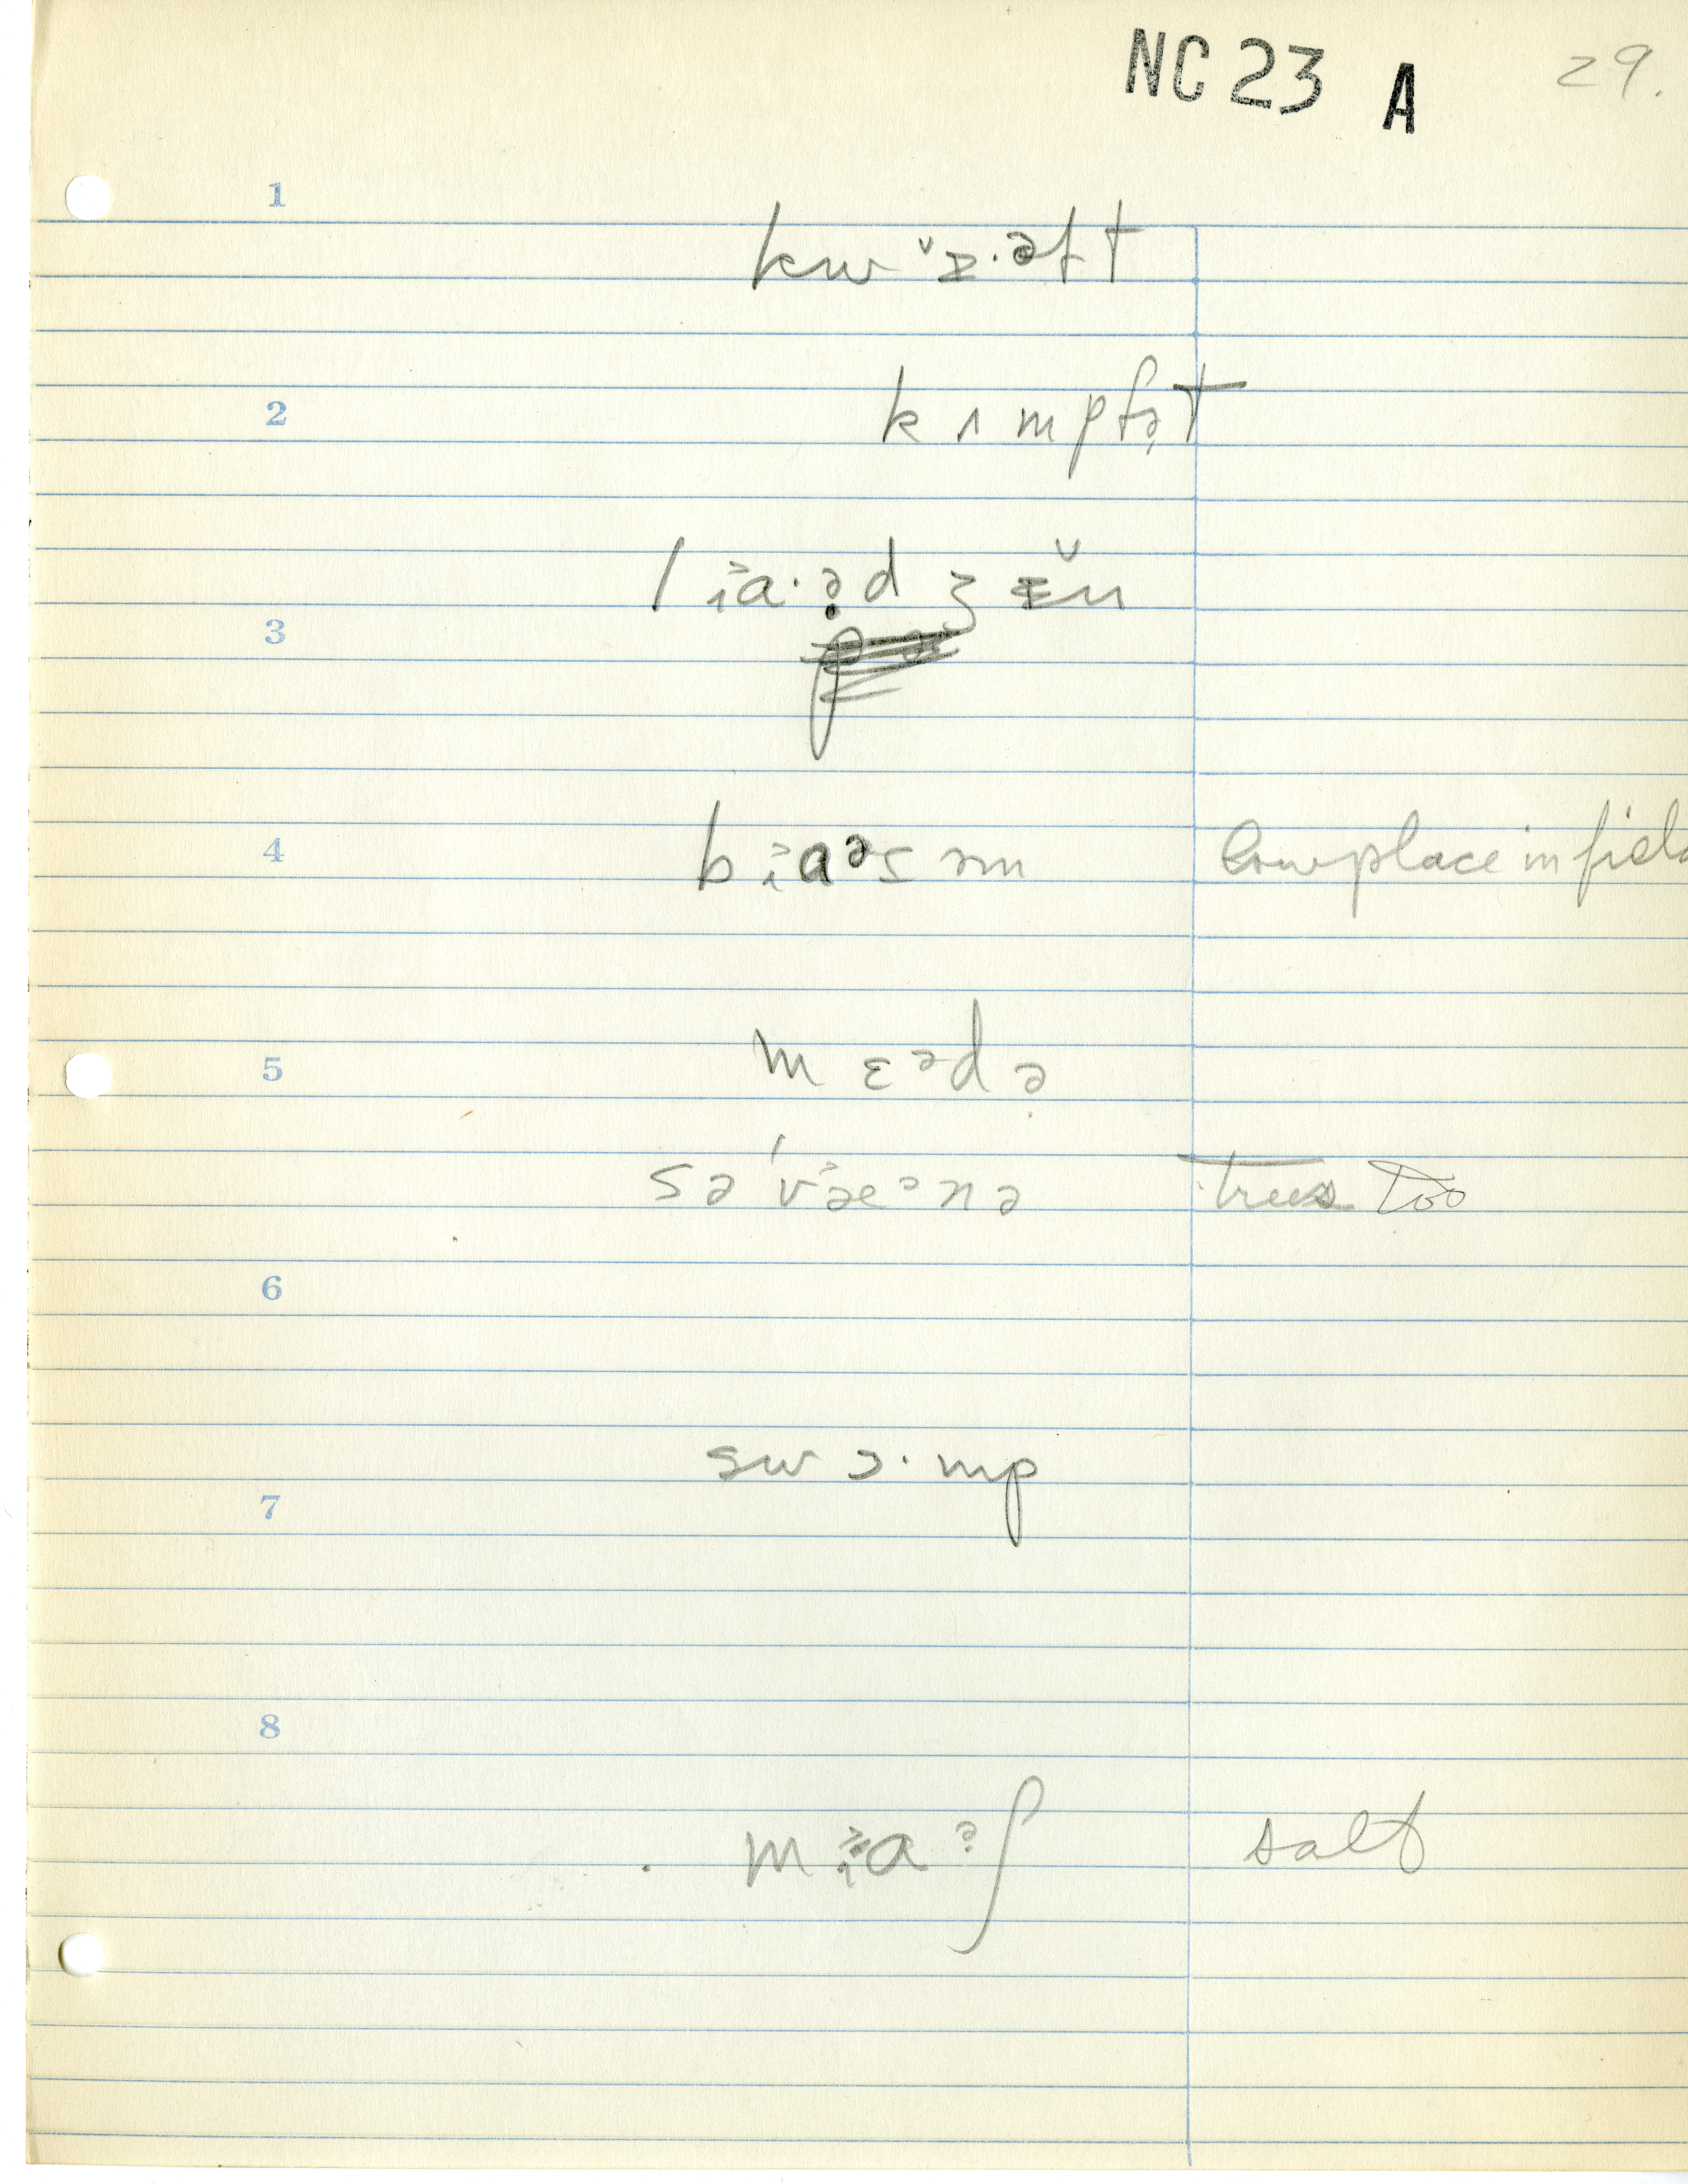 NC 23 A 29.
1
kw ᵛɪ·əlt
2
k ʌ m p fə̣t
3
l ɪ˃a·ə̣d ʒ ɪ̆n
4
b ɪ˃aᵊs əm low place in field
5
m ɛᵊd ə̣
sə ˈv˃æᵊnə trees too
6
7
sw ɔ· mp
8
m ɪ˃a ᵊ̣ʃ salt